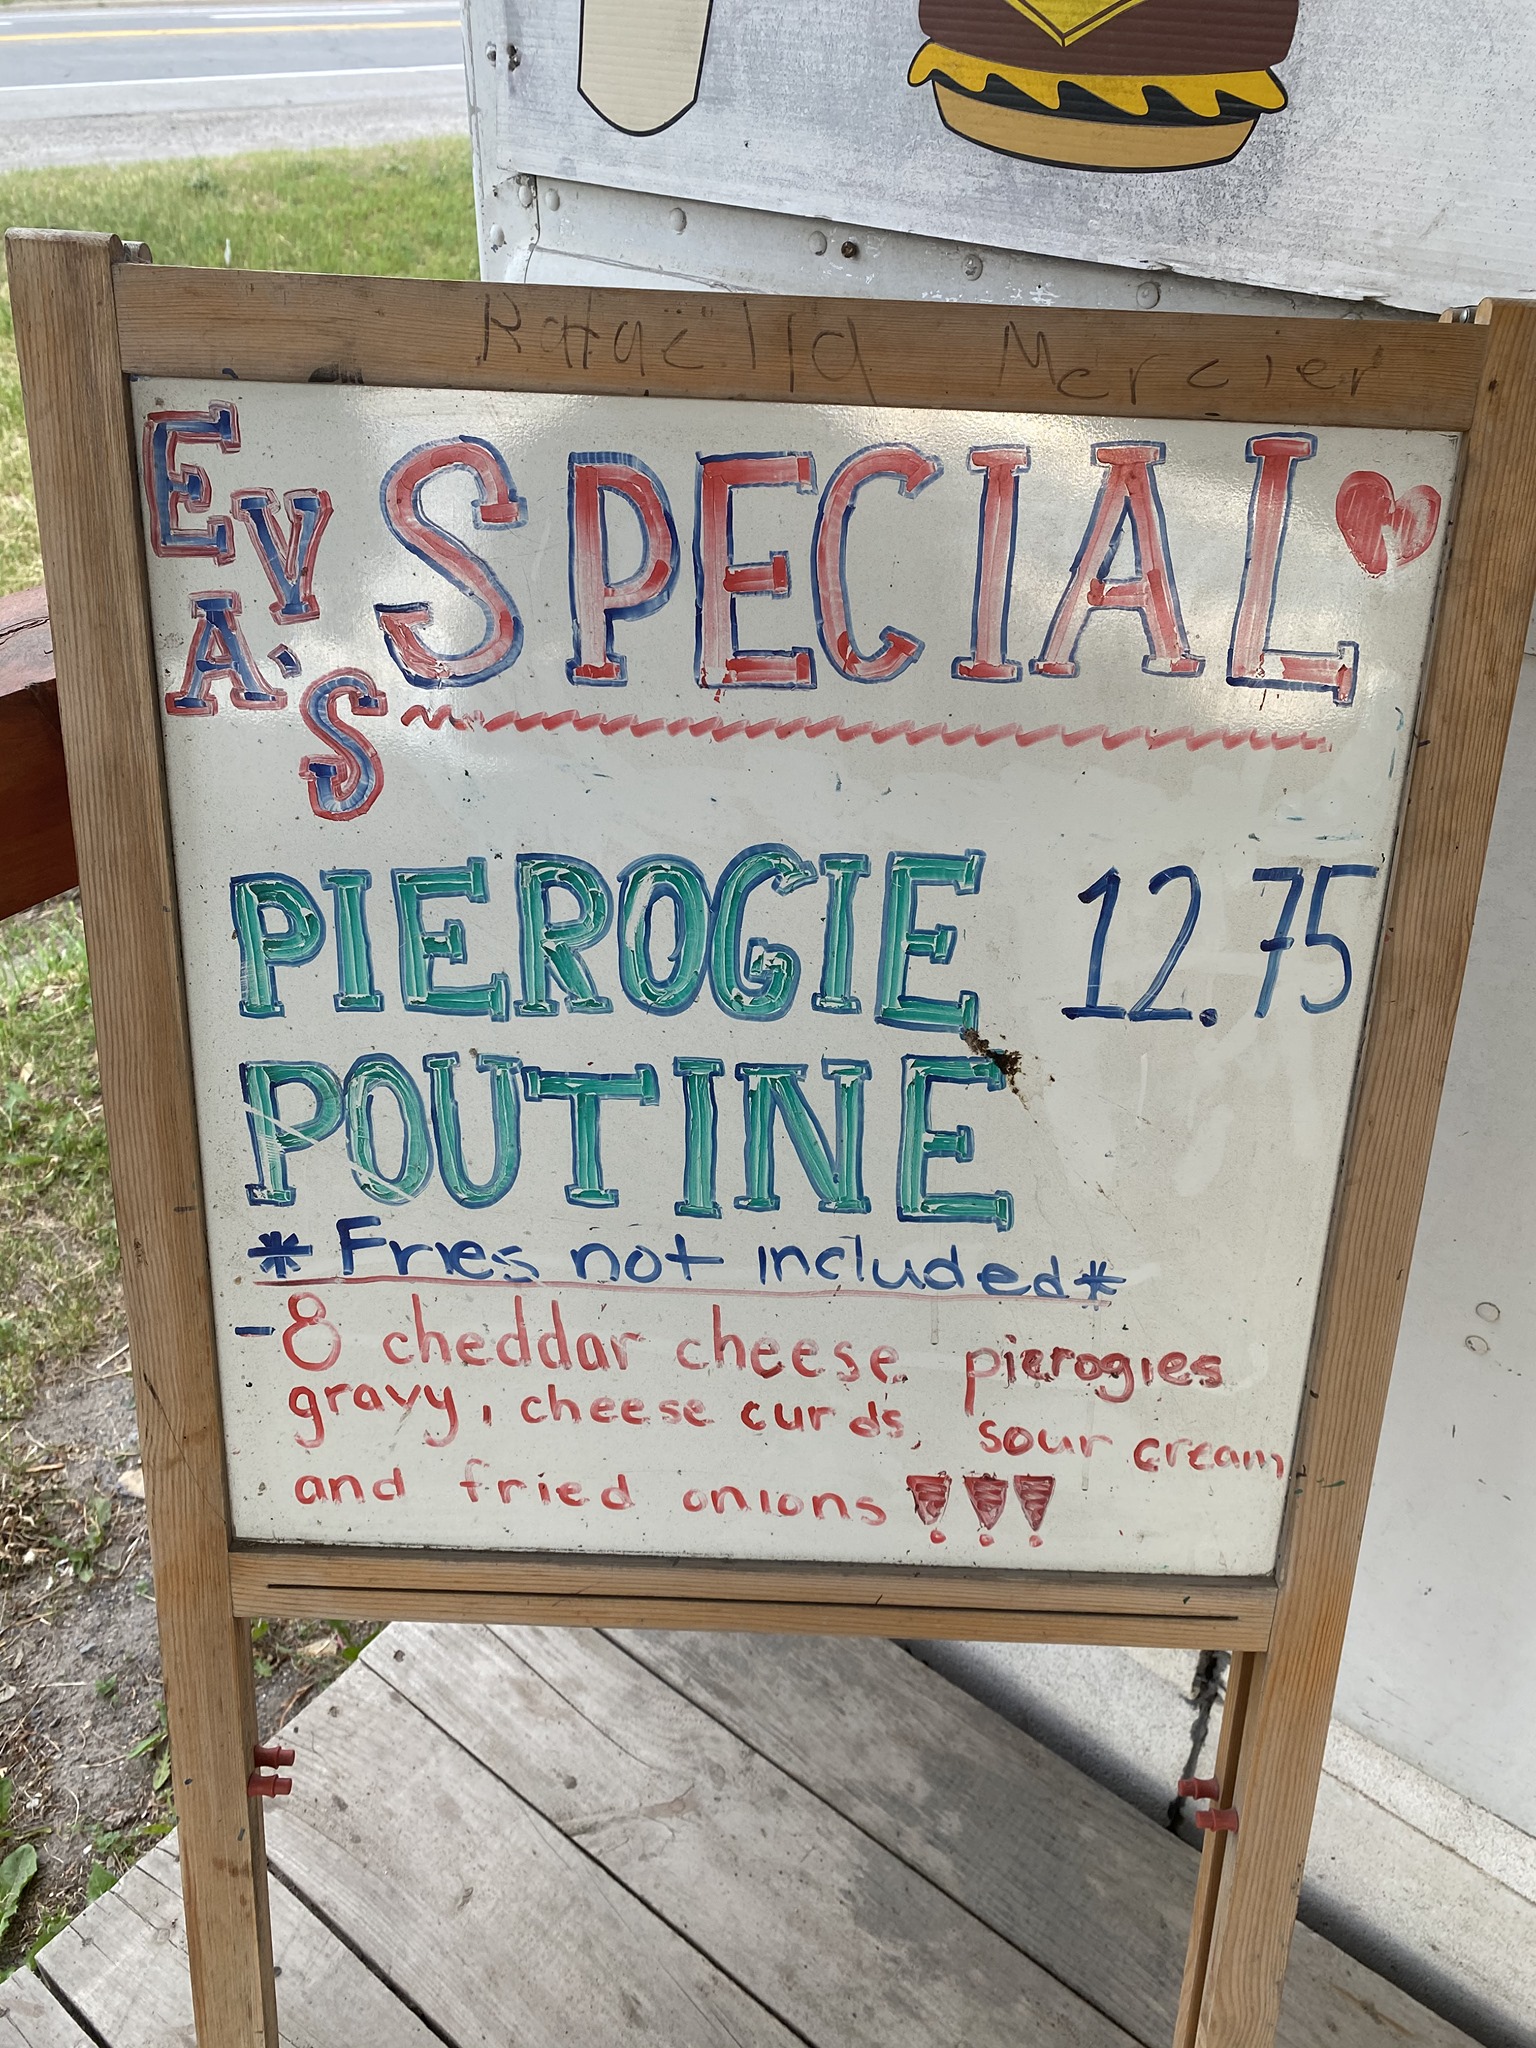 Rafaëlla Mercier
EVA'S SPECIAL
PIEROGIE 12.75
POUTINE
* Fries not included *
- 8 cheddar cheese pierogies
gravy, cheese curds, sour cream
and fried onions !!!